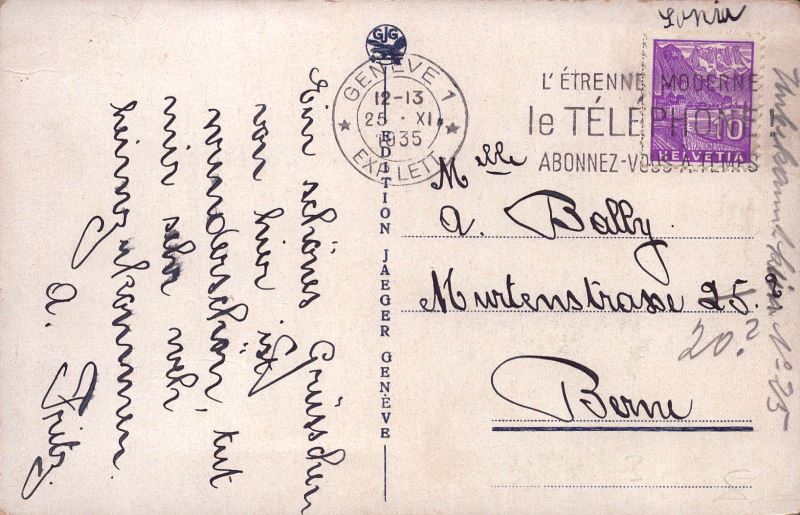 Ein schönes Grüsschen
von hier. ist
wunderschön, tut
mir sehr weh
heimzukommen.
A. Fritz.
GJG
EDITION JAEGER GENÈVE
GENÈVE 1
12-13
25 · XI
1935
EXP. LETT.
L'ÉTRENNE MODERNE
le TÉLÉPHONE
ABONNEZ-VOUS A TEMPS
10
HELVETIA
Sonia
Mlle
A. Bally
Murtenstrasse 25.
20.?
Berne
Unbekannt No 25